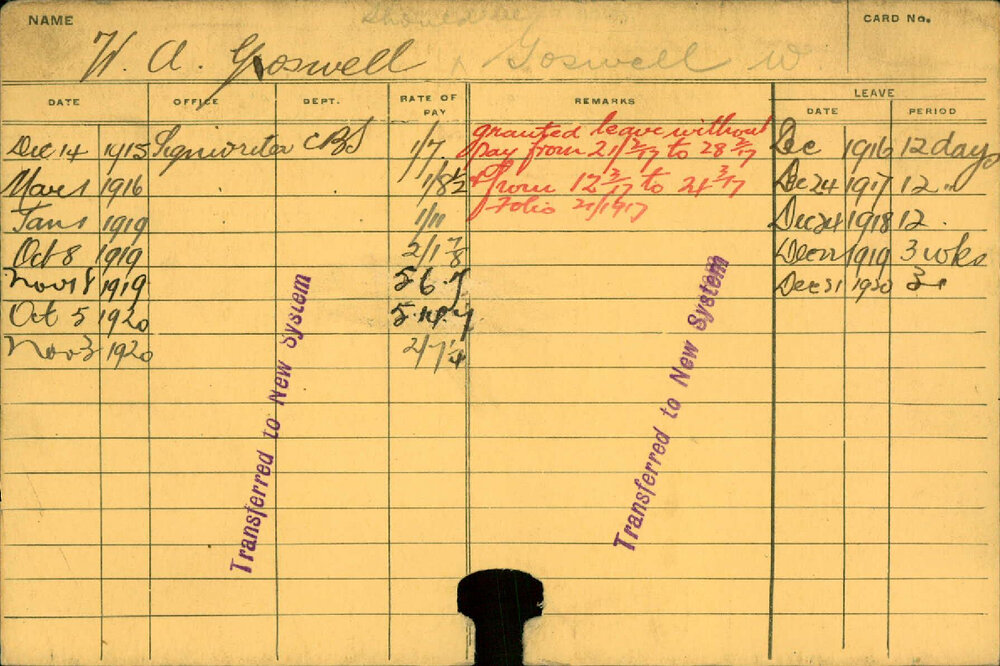 NAME
should be
CARD No.
W. A. Goswell
Goswell W
DATE OFFICE DEPT. RATE OF PAY REMARKS LEAVE
DATE PERIOD
Dec 14 1915 Signwriter CBS 1/7 granted leave without Dec 1916 12 days
pay from 21/2/17 to 28 3/17
Mar 1 1916 1/8½ & from 12 3/17 to 24 3/17 Dec 24 1917 12 "
Folio 21/1917
Jan 1 1919 1/11 Dec 24 1918 12
Oct 8 1919 2/1 7/8 Dec 22 1919 3 wks
Nov 1 1919 5.6.7 Dec 31 1920 3 "
Oct 5 1920
Nov 3 1920 2/7¼
Transferred to New System
Transferred to New System